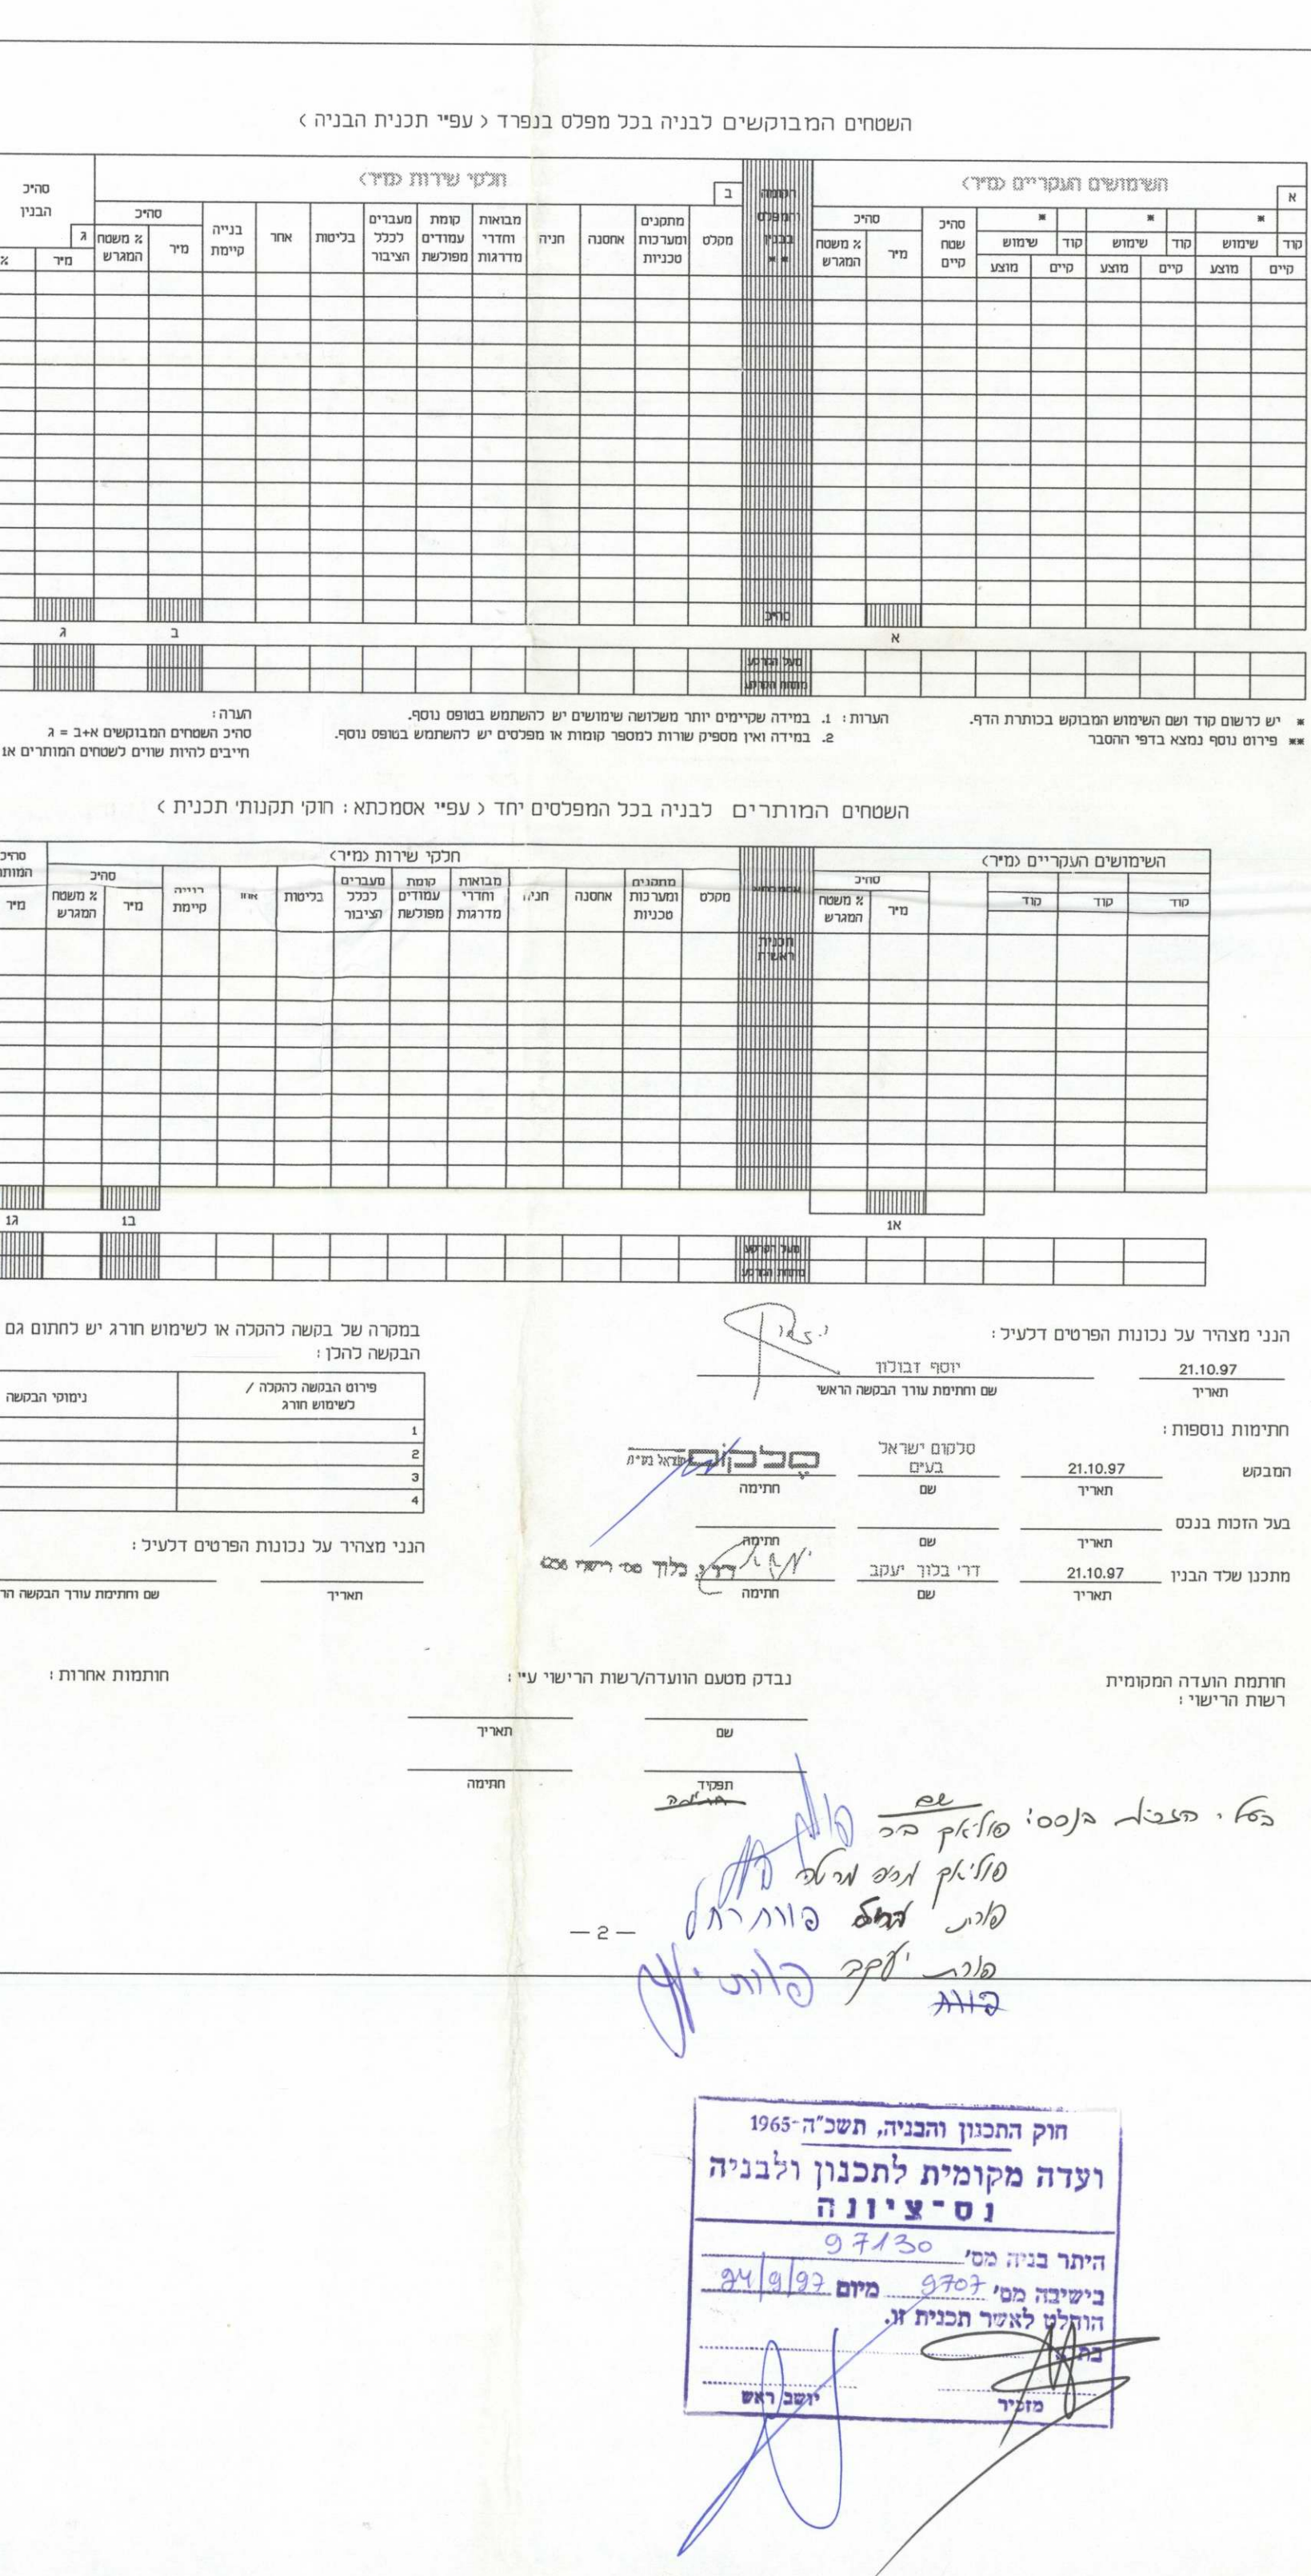 השטחים המבוקשים לבניה בכל מפלס בנפרד < עפ״י תכנית הבניה >
א
השימושים העקריים <מ״ר>
הקומה והמפלס בבנין **
ב
חלקי שירות <מ״ר>
סה״כ הבנין
ג
קוד שימוש * קוד שימוש * קוד שימוש *
סה״כ שטח קיים
סה״כ
מ״ר
% משטח המגרש
קיים מוצע קיים מוצע קיים מוצע
מקלט
מתקנים ומערכות טכניות
אחסנה
חניה
מבואות וחדרי מדרגות
קומת עמודים מפולשת
מעברים לכלל הציבור
בליטות
אחר
בנייה קיימת
סה״כ
מ״ר
% משטח המגרש
מ״ר
%
סה״כ
א ב ג
מעל הקרקע
מתחת הקרקע
* יש לרשום קוד ושם השימוש המבוקש בכותרת הדף.
** פירוט נוסף נמצא בדפי ההסבר
הערות : 1. במידה שקיימים יותר משלושה שימושים יש להשתמש בטופס נוסף.
2. במידה ואין מספיק שורות למספר קומות או מפלסים יש להשתמש בטופס נוסף.
הערה :
סה״כ השטחים המבוקשים א+ב = ג
חייבים להיות שווים לשטחים המותרים א1
השטחים המותרים לבניה בכל המפלסים יחד < עפ״י אסמכתא : חוק׳ תקנות׳ תכנית >
השימושים העקריים <מ״ר>
חלקי שירות <מ״ר>
סה״כ
קוד קוד קוד
סה״כ
מ״ר
% משטח המגרש
אסמכתא
מקלט
מתקנים ומערכות טכניות
אחסנה
חניה
מבואות וחדרי מדרגות
קומת עמודים מפולשת
מעברים לכלל הציבור
בליטות
אחר
בנייה קיימת
סה״כ
מ״ר
% משטח המגרש
מ״ר
תכנית ראשית
א1 ב1 ג1
מעל הקרקע
מתחת הקרקע
הנני מצהיר על נכונות הפרטים דלעיל :
21.10.97 יוסף זבולון
תאריך שם וחתימת עורך הבקשה הראשי
חתימות נוספות :
המבקש 21.10.97 סלקום ישראל בע״מ סלקום ישראל בע״מ
תאריך שם חתימה
בעל הזכות בנכס
תאריך שם חתימה
מתכנן שלד הבנין 21.10.97 דר׳ בלוך יעקב
תאריך שם חתימה
במקרה של בקשה להקלה או לשימוש חורג יש לחתום גם
הבקשה להלן :
פירוט הבקשה להקלה / לשימוש חורג נימוקי הבקשה
1
2
3
4
הנני מצהיר על נכונות הפרטים דלעיל :
תאריך שם וחתימת עורך הבקשה הר
חותמת הועדה המקומית
רשות הרישוי :
נבדק מטעם הוועדה/רשות הרישוי ע״י :
שם תאריך
תפקיד חתימה
חותמות אחרות :
שם חתימה
בעלי הזכות בנכס:
פורת יעקב
פורת
— 2 —
חוק התכנון והבניה, תשכ"ה-1965
ועדה מקומית לתכנון ולבניה
נס-ציונה
היתר בניה מס׳ 97130
בישיבה מס׳ 9707 מיום 24/9/97
הוחלט לאשר תכנית זו.
מזכיר יושב ראש